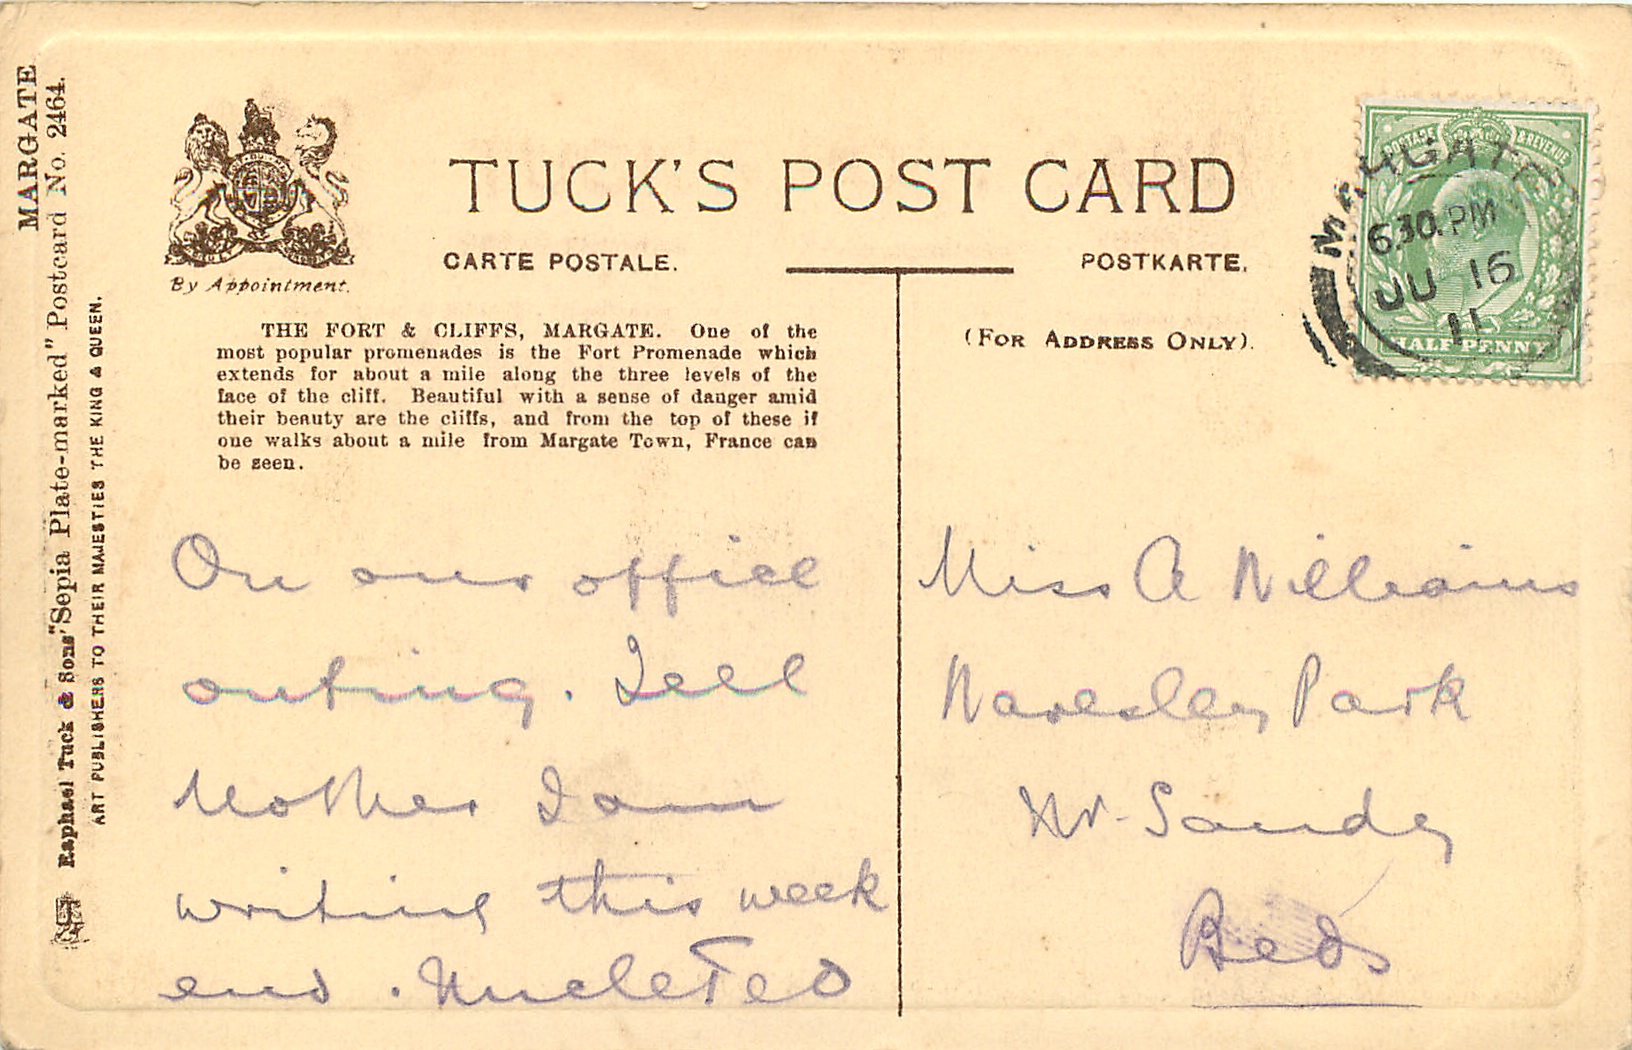 MARGATE
Raphael Tuck & Sons' "Sepia Plate-marked" Postcard No. 2464.
ART PUBLISHERS TO THEIR MAJESTIES THE KING & QUEEN.
TUCK'S POST CARD
CARTE POSTALE.
POSTKARTE.
By Appointment.
THE FORT & CLIFFS, MARGATE. One of the
most popular promenades is the Fort Promenade which
extends for about a mile along the three levels of the
face of the cliff. Beautiful with a sense of danger amid
their beauty are the cliffs, and from the top of these if
one walks about a mile from Margate Town, France can
be seen.
(FOR ADDRESS ONLY).
POSTAGE & REVENUE
HALF PENNY
MARGATE
6.30.PM
JU 16
11
On our office
outing. Tell
Mother I am
writing this week
end. Uncle Ted
Miss A Williams
Waresley Park
Nr. Sandy
Beds